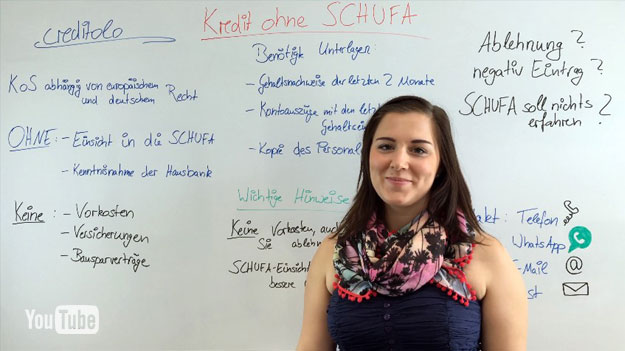 creditolo
KoS abhängig von europäischem
und deutschem Recht
OHNE: - Einsicht in die SCHUFA
- Kenntnisnahme der Hausbank
Keine: - Vorkosten
- Versicherungen
- Bausparverträge
Kredit ohne SCHUFA
Benötigte Unterlagen:
- Gehaltsnachweise der letzten 2 Monate
- Kontoauszüge mit den letzt
Gehaltsein
- Kopie des Personal
Wichtige Hinweise
Keine Vorkosten, auch
Sie ablehn
SCHUFA-Einsicht
bessere
Ablehnung?
negativ Eintrag?
SCHUFA soll nichts
erfahren?
akt: Telefon
WhatsApp
E-Mail
st
@
YouTube